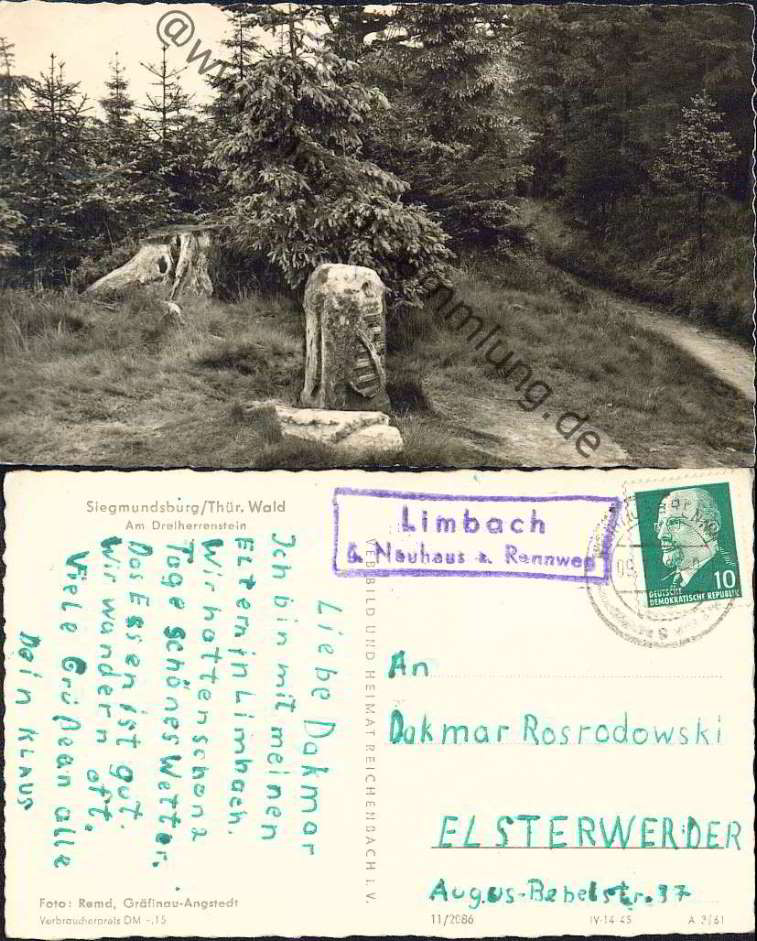 Siegmundsburg/Thür. Wald
Am Dreiherrenstein
Liebe Dakmar
Ich bin mit meinen
Eltern in Limbach.
Wir hatten schon 2
Tage schönes Wetter.
Das Essen ist gut.
Wir wandern oft.
Viele Grüße an alle
Dein Klaus
Foto: Remd, Gräfinau-Angstedt
Verbraucherpreis DM -.15
VEB BILD UND HEIMAT REICHENBACH I. V.
Limbach
ü. Neuhaus a. Rennweg
10
DEUTSCHE
DEMOKRATISCHE REPUBLIK
An
Dakmar Rosrodowski
ELSTERWERDER
Augus-Bebelstr. 37
11/2086
IV-14-45